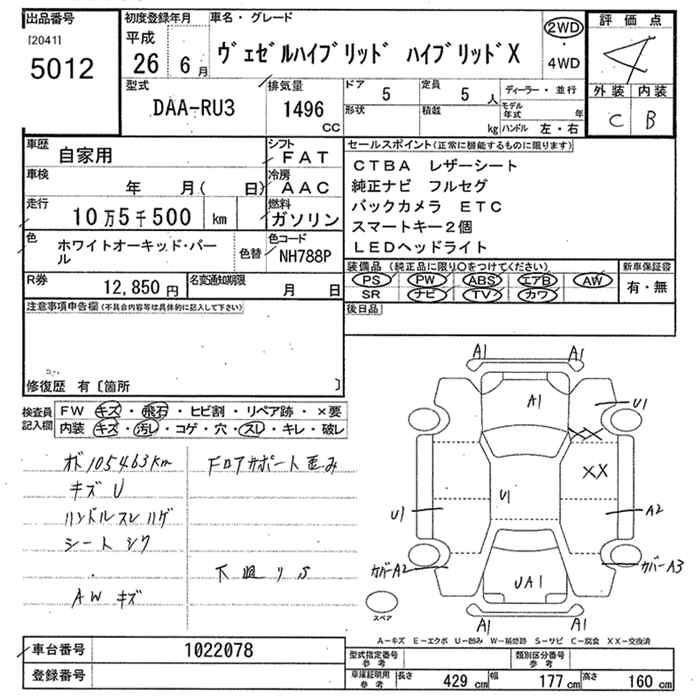 出品番号
[2041]
5012
初度登録年月
平成
26 6月
車名・グレード
ヴェゼルハイブリッド ハイブリッドX
2WD
・
4WD
評価点
4
外装 内装
C B
型式
DAA-RU3
排気量
1496
CC
ドア 5
定員 5 人
形状
積載 kg
ディーラー・並行
モデル年式 年
ハンドル 左・右
車歴
自家用
シフト
FAT
車検
年 月( 日)
冷房
AAC
走行
10万5千500 km
燃料
ガソリン
色
ホワイトオーキッド・パール
色替
色コード
NH788P
セールスポイント(正常に機能するものに限ります)
CTBA レザーシート
純正ナビ フルセグ
バックカメラ ETC
スマートキー2個
LEDヘッドライト
R券
12,850 円
名変通知期限
月 日
装備品(純正品に限り○をつけてください)
PS PW ABS エアB AW
SR ナビ TV カワ
新車保証書
有・無
注意事項申告欄(不具合内容等は具体的に記入して下さい)
後日品
修復歴 有〔箇所 〕
検査員記入欄
FW キズ・飛石・ヒビ割・リペア跡・×要
内装 キズ・汚レ・コゲ・穴・スレ・キレ・破レ
メ 105463km
キズ U
ハンドルスレ ハゲ
シート シワ
AW キズ
Fロアサポート歪み
下廻りS
A1 A1
A1
U1
XX
XX
U1
U1
A2
カバーA2
カバーA3
UA1
スペア
A1 A1
A-キズ E-エクボ U-凹み W-補修跡 S-サビ C-腐食 XX-交換済
車台番号
1022078
登録番号
型式指定番号 参考
類別区分番号 参考
車庫証明用 参考
長さ 429 cm
幅 177 cm
高さ 160 cm